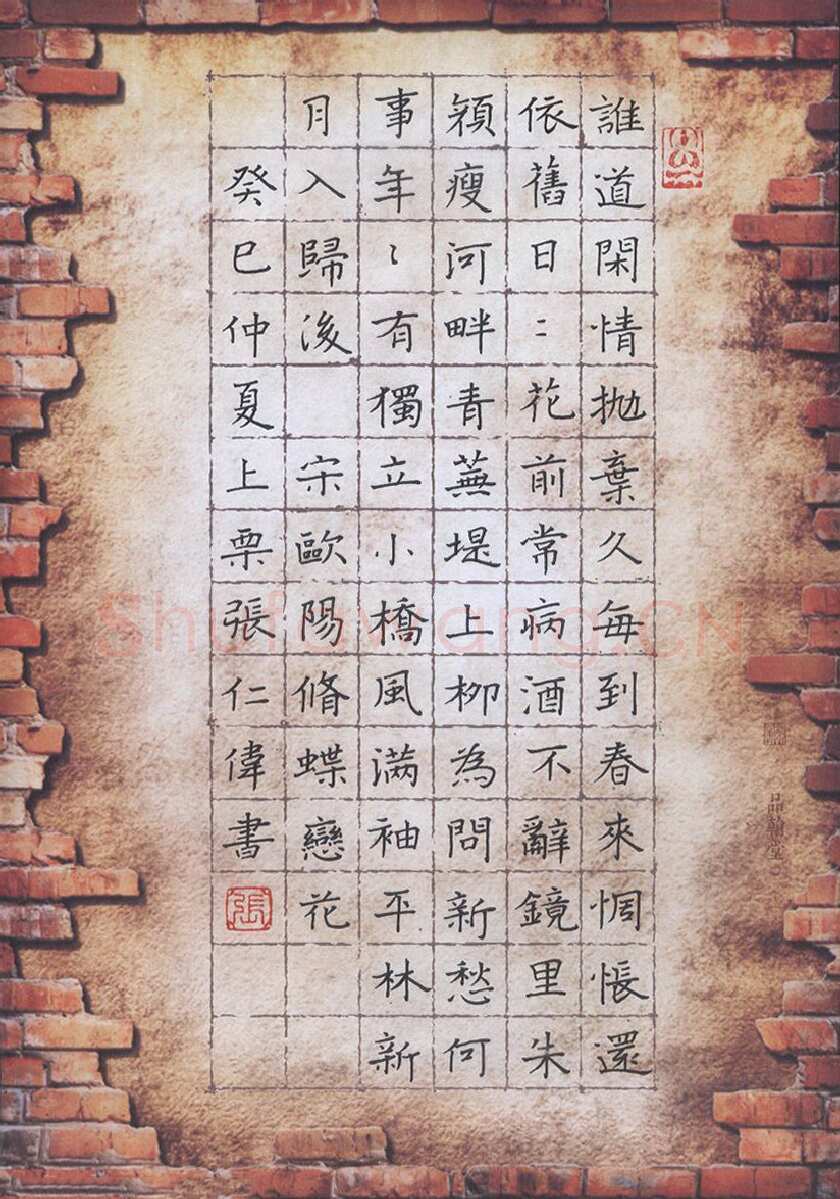 誰道閑情抛棄久每到春來惆悵還
依舊日〻花前常病酒不辭鏡里朱
顏瘦河畔青蕪堤上柳為問新愁何
事年〻有獨立小橋風滿袖平林新
月入歸後 宋歐陽脩蝶戀花
癸巳仲夏上栗張仁偉書
張
Shufawang.CN